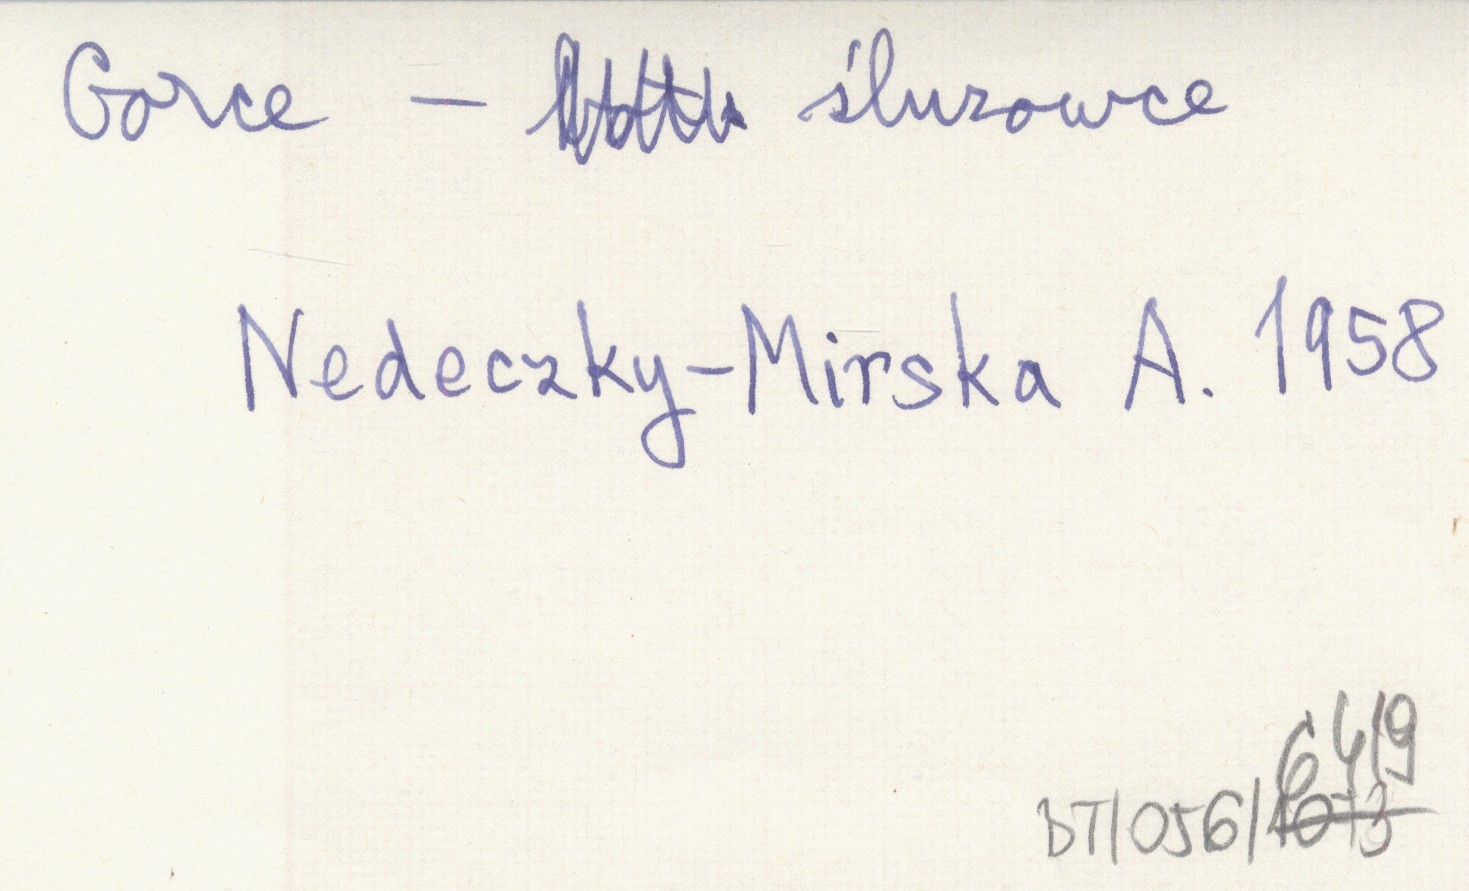 Gorce - śluzowce
Nedeczky-Mirska A. 1958
6419
BT/056/1073